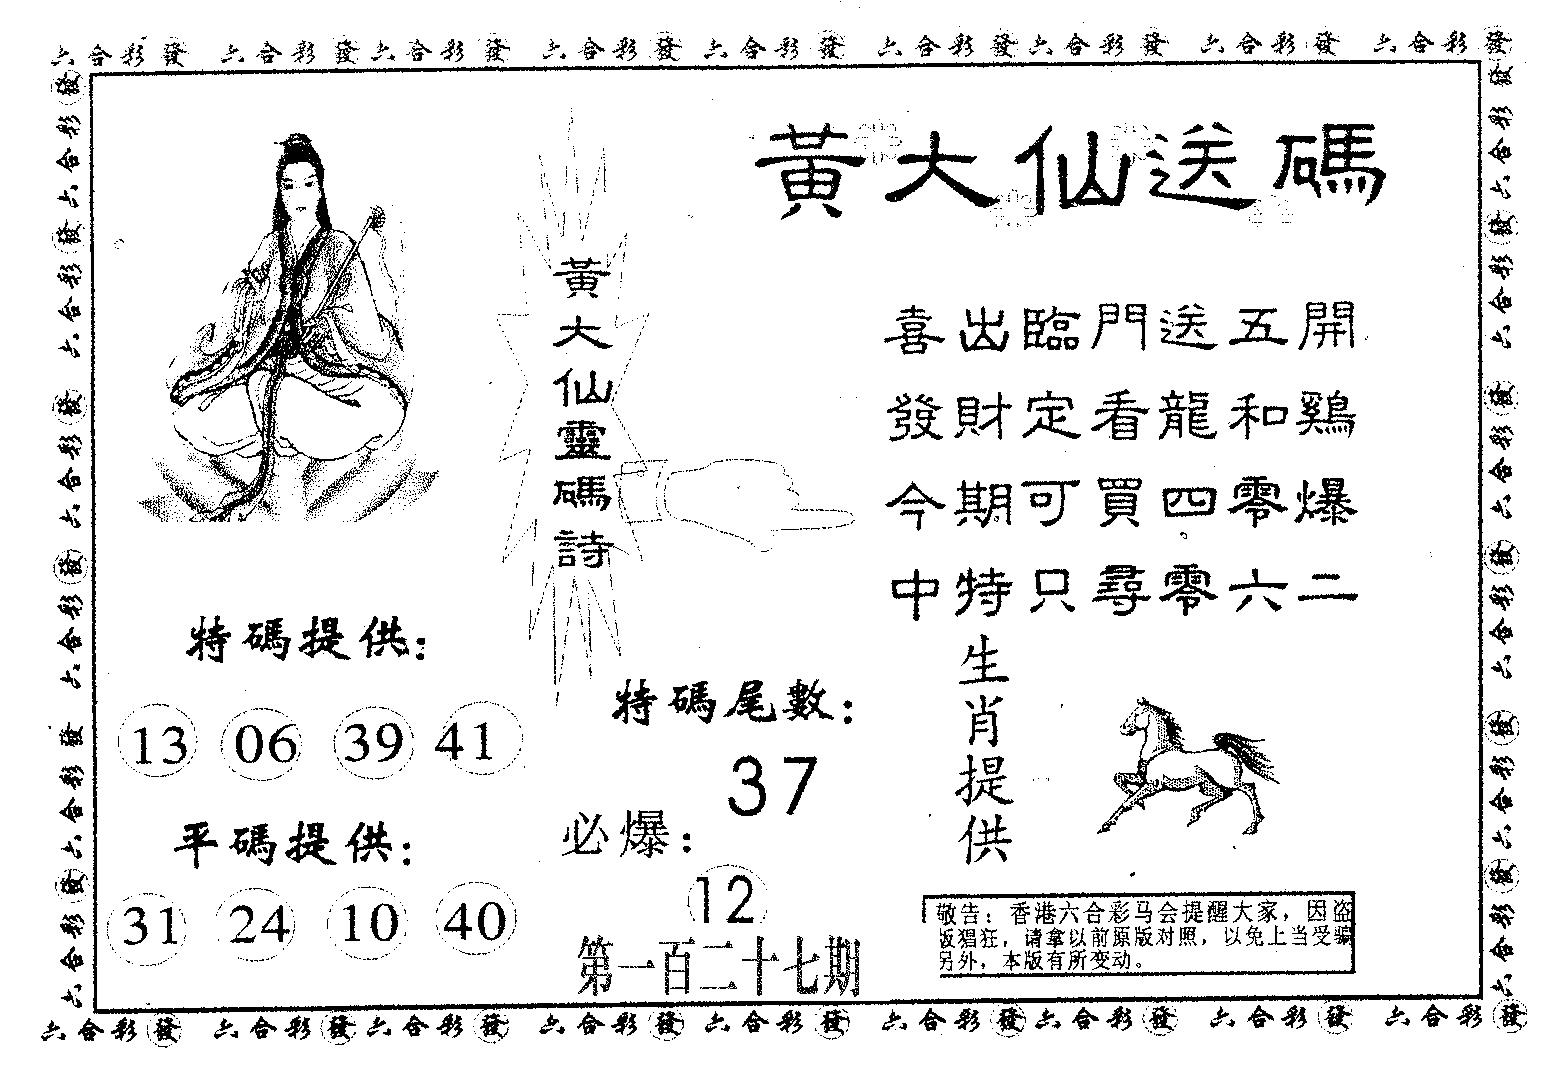 六合彩發 六合彩發六合彩發 六合彩發 六合彩發 六合彩發六合彩發 六合彩發 六合彩發
黃大仙送碼
黃大仙靈碼詩
喜出臨門送五開
發財定看龍和鷄
今期可買四零爆
中特只尋零六二
特碼提供：
13 06 39 41
平碼提供：
31 24 10 40
特碼尾數：
37
必爆：
12
第一百二十七期
生肖提供
敬告：香港六合彩马会提醒大家，因盗
版猖狂，请拿以前原版对照，以免上当受骗
另外，本版有所变动。
六合彩發 六合彩發六合彩發 六合彩發 六合彩發 六合彩發六合彩發 六合彩發 六合彩發
發六合彩發六合彩發六合彩發六合彩發六合彩發六合彩
發六合彩發六合彩發六合彩發六合彩發六合彩發六合彩